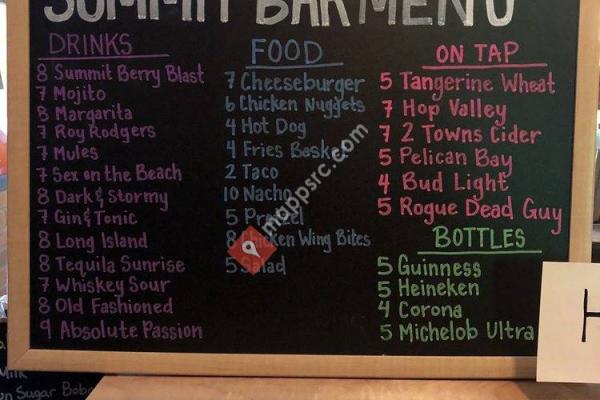 SUMMIT BAR MENU
DRINKS
8 Summit Berry Blast
7 Mojito
8 Margarita
7 Roy Rodgers
7 Mules
7 Sex on the Beach
8 Dark & Stormy
7 Gin & Tonic
8 Long Island
8 Tequila Sunrise
7 Whiskey Sour
8 Old Fashioned
9 Absolute Passion
FOOD
7 Cheeseburger
6 Chicken Nuggets
4 Hot Dog
4 Fries Basket
2 Taco
10 Nacho
5 Pretzel
8 Chicken Wing Bites
5 Salad
ON TAP
5 Tangerine Wheat
7 Hop Valley
7 2 Towns Cider
5 Pelican Bay
4 Bud Light
5 Rogue Dead Guy
BOTTLES
5 Guinness
5 Heineken
4 Corona
5 Michelob Ultra
mappsrc.com
H
Milk
Sugar Boba